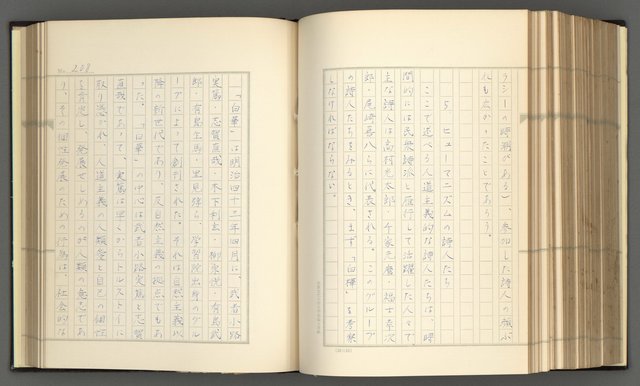 ラシーの時潮がある)、参加した詩人の幅が
れも広かったことであらう。
5、ヒューマニズムの詩人たち
ここで述べる人道主義的な詩人たちは、時
間的には民衆詩派と雁行して活躍した人々で、
主な詩人は高村光太郎・千家元麿・福士幸次
郎・尾崎喜八らに代表される。このグループ
の詩人たちをみるとき、まず「白樺」を考察
しなければならない。
No. 208
「白樺」は明治四十三年四月に、武者小路
実篤・志賀直哉・木下利玄・柳宗悦・有島武
郎・有島生馬・里見弴ら、学習院出身のグル
ープによって創刊された。それは自然主義以
降の新世代であり、反自然主義の拠点でもあ
った。「白樺」の中心は武者小路実篤と志賀
直哉であって、実篤は早くからトルストーに
取り憑かれ、人道主義の人類愛と自己の個性
を育児し、発展せしめるのが人類の意志であ
り、その個性発展のための行為は、社会的な